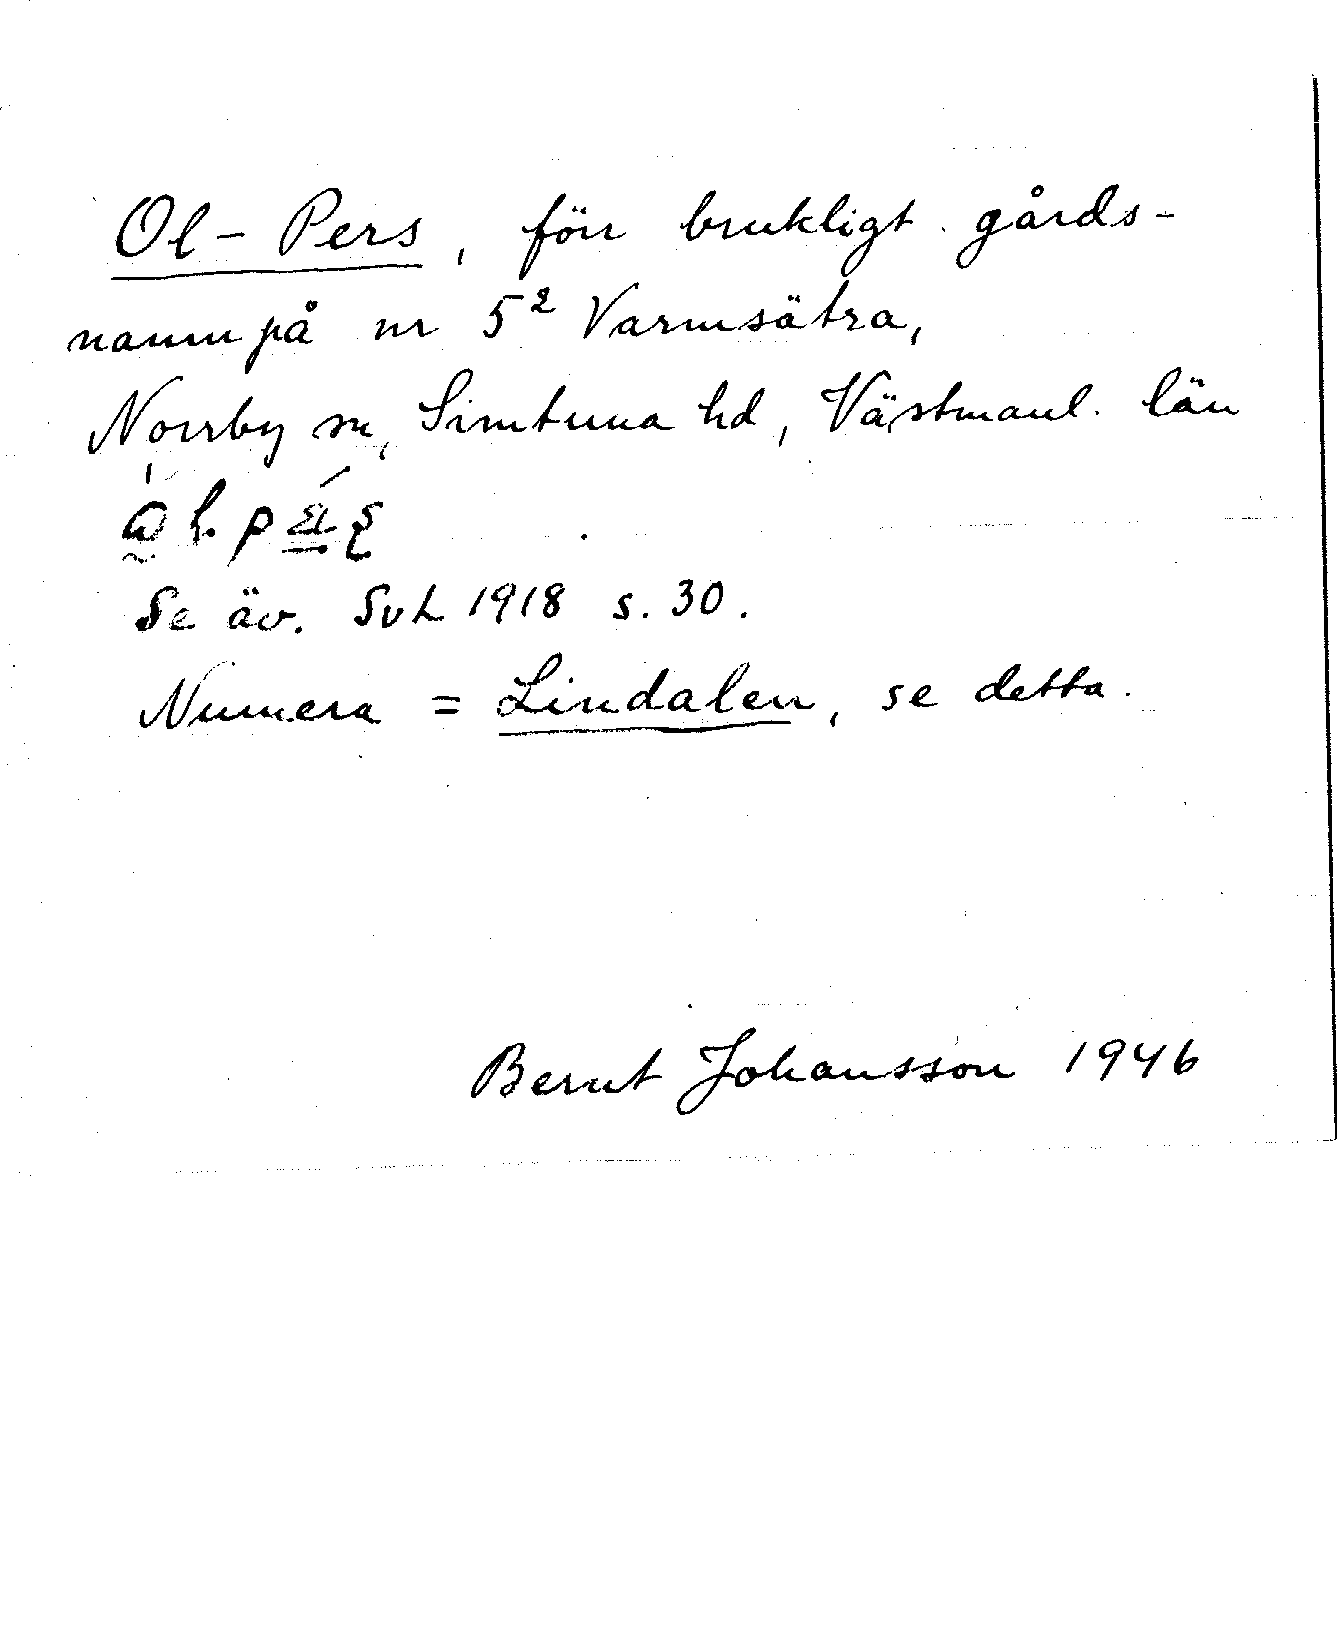 Ol-Pers, förr brukligt gårds-
namn på nr 5² Varmsätra,
Norrby sn, Simtuna hd, Västmanl. län
Se äv. SvL 1918 s. 30.
Numera = Lindalen, se detta.
Bernt Johansson 1946